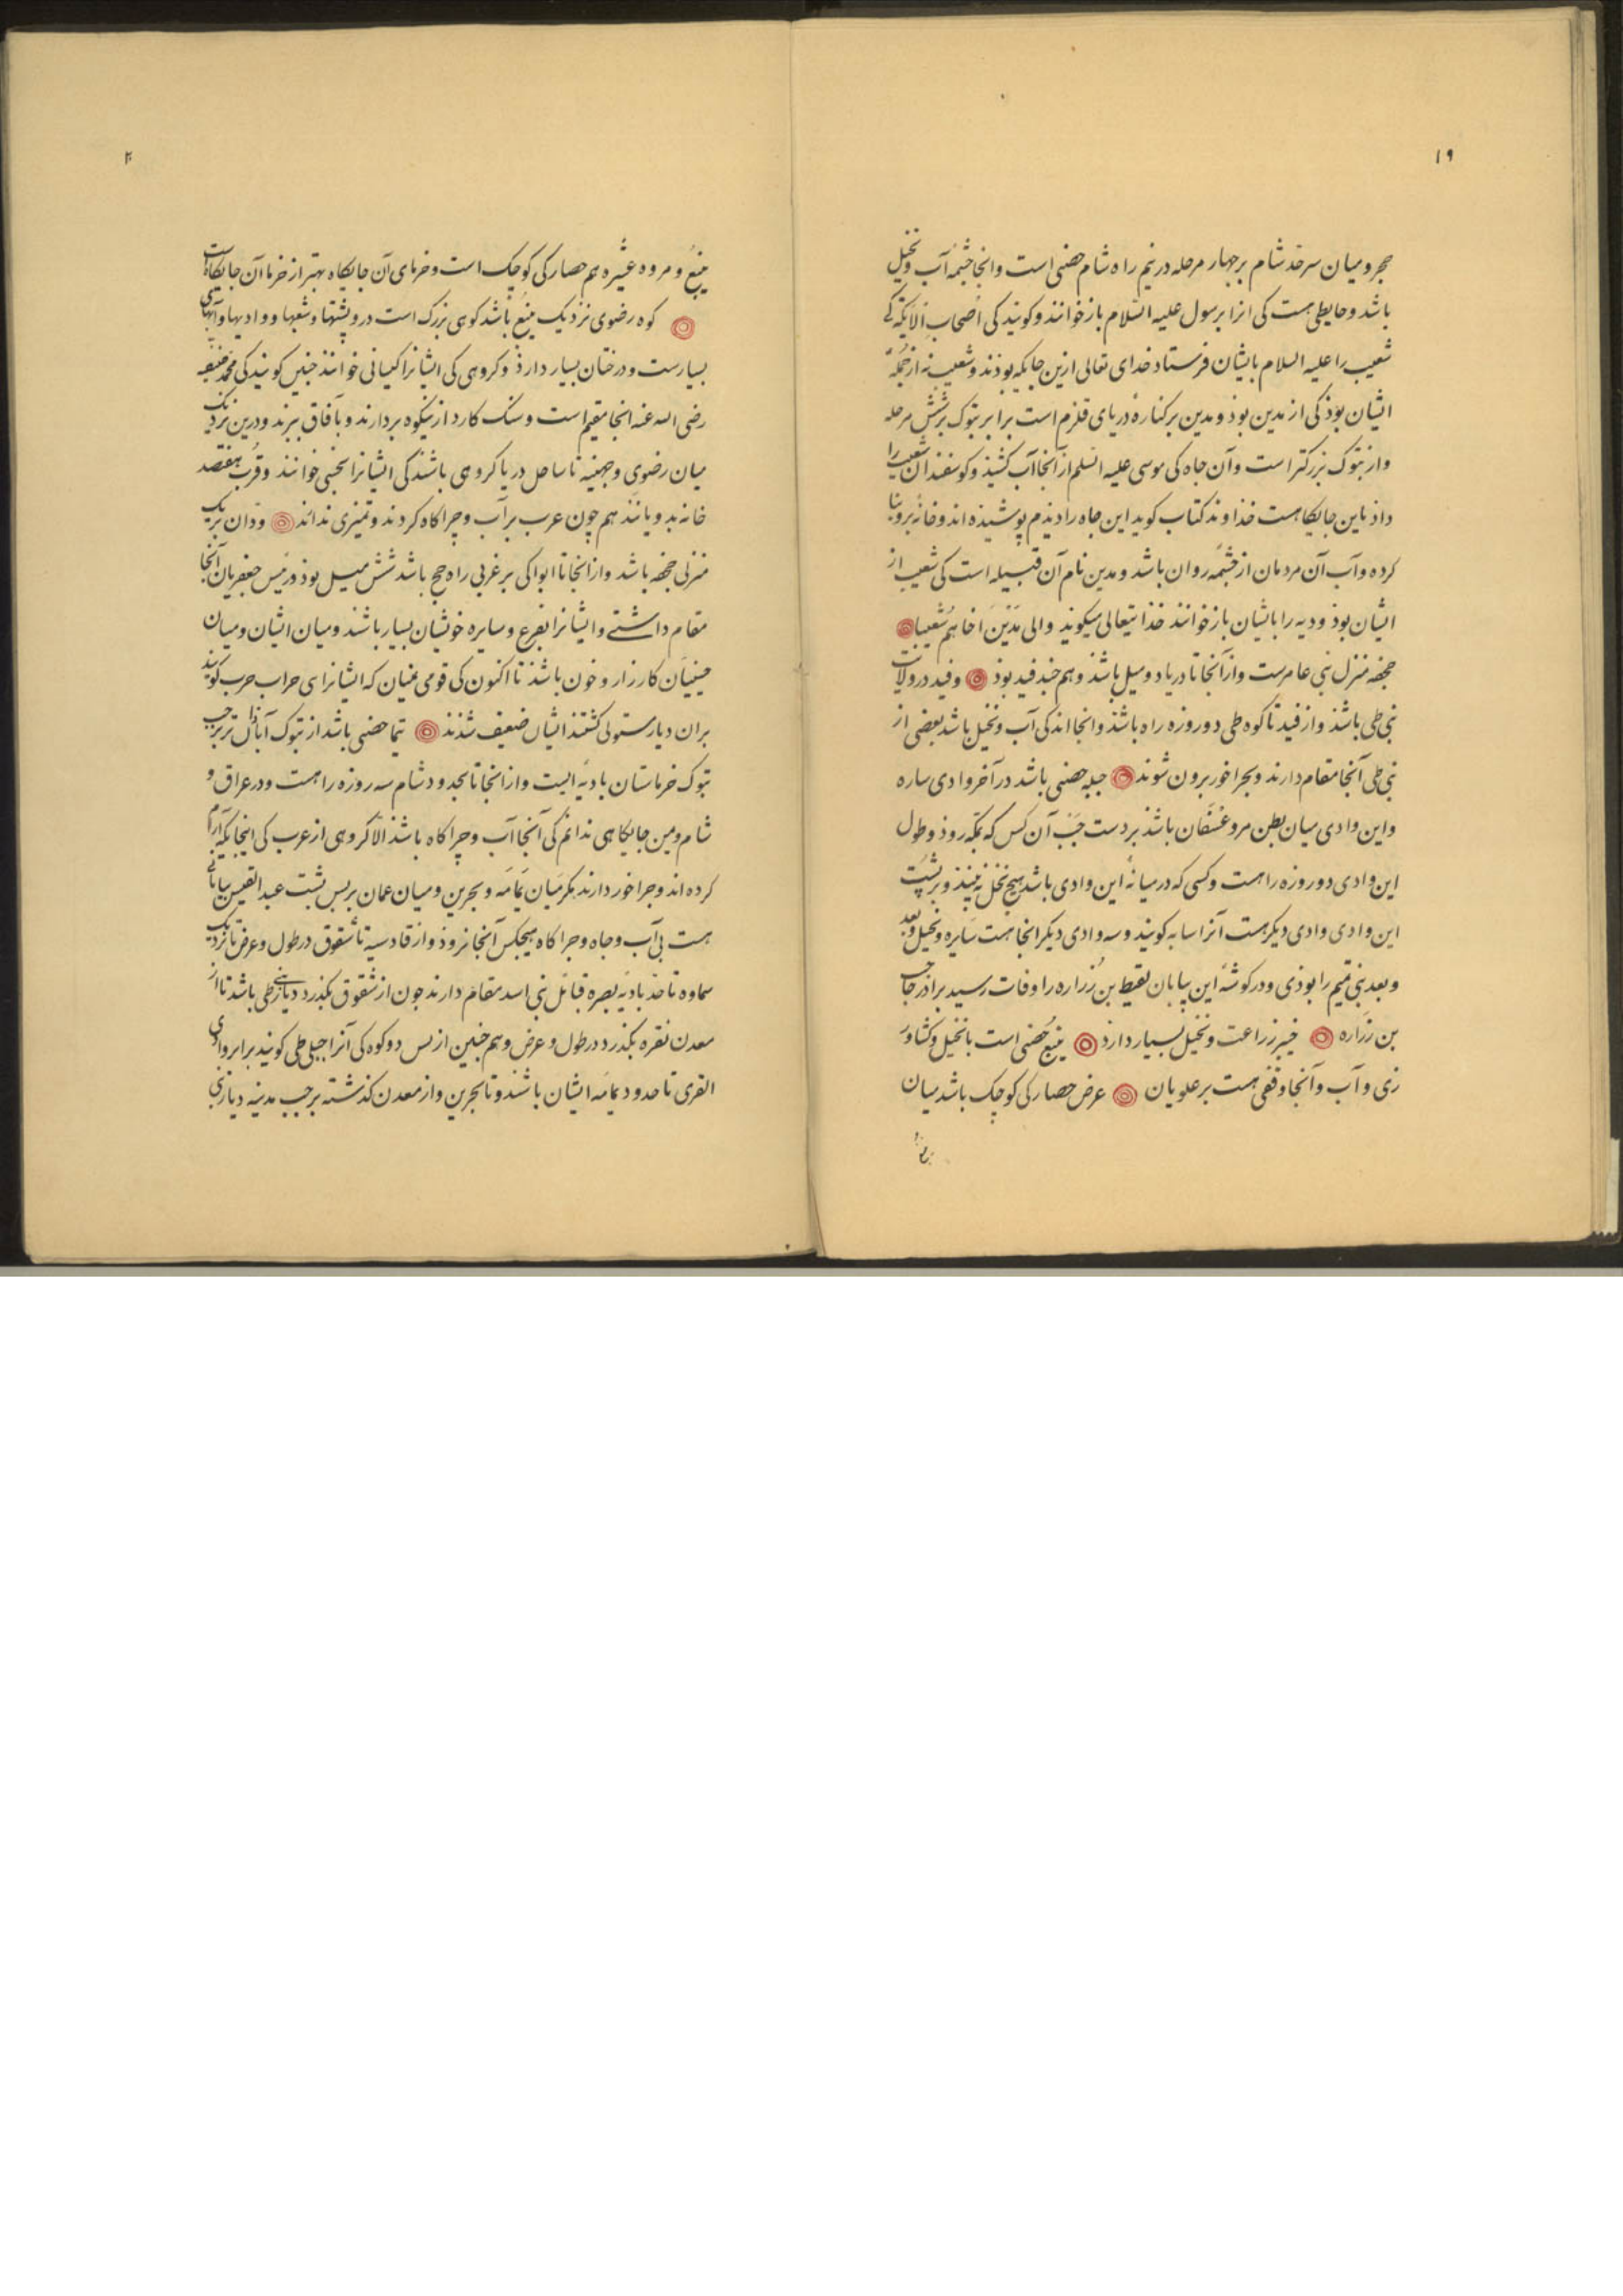 ۱۹
حجر و میان سرحد شام بر چهار مرحله در نیم راه شام حصنی است وانجا چشمه آب و نخیل
باشد و حایطی هست کی انرا برسول علیه السلام باز خوانند و کویند کی اصحاب الایکه کی
شعیب را علیه السلام بایشان فرستاد خدای تعالی ازین جایکه بوذند و شعیب نه از جمله
ایشان بوذ کی از مدین بوذ و مدین بر کنارهٔ دریای قلزم است برابر تبوک بر شش مرحله
و از تبوک بزرکتر است وآن جاه کی موسی علیه السلم از آنجا آب کشیذ و کوسفندان شعیب را
داذ باین جایکاهست خذاوند کتاب کوید این جاه را دیذم پوشیذه اند و خانهٔ برو بنا
کرده وآب آن مردمان از چشمه روان باشد و مدین نام آن قبیله است کی شعیب از
ایشان بوذ و دیه را بایشان باز خوانند خذایتعالی میکوید والی مدین اخاهم شعیبا
جحفه منزل بنی عامرست واز آنجا تا دریا دو میل باشذ وهم حد فید بوذ وفید در ولایت
بنی طی باشذ واز فید تا کوه طی دو روزه راه باشذ وانجا اندکی آب و نخیل باشد بعضی از
بنی طی آنجا مقام دارند و بجراخور برون شوند جبله حصنی باشد در آخر وادی ساره
واین وادی میان بطن مر و عسفان باشذ بر دست چپ آن کس که بمکه روذ و طول
این وادی دو روزه راهست و کسی که در میانهٔ این وادی باشد هیچ نخل نه بینذ و بر پشت
این وادی وادی دیکر هست آنرا سایه کویند و سه وادی دیکر انجا هست سایره و نخیل و بعد
و بعد بنی تمیم را بوذی و در کوشهٔ این بیابان لقیط بن زراره را وفات رسید براذر حاجب
بن زراره خیبر زراعت و نخیل بسیار دارذ ینبع حصنی است با نخیل و کشاورز
زی و آب وآنجا وقفی هست بر علویان عرض حصارکی کوچک باشد میان
ینبع
ینبع و مروه عشیره هم حصارکی کوچک است و خرمای آن جایکاه بهتر از خرما آن جایکاهست
کوه رضوی نزدیک ینبع باشد کوهی بزرک است درو پشتها و شعبها و وادیها وآبهای
بسیارست و درختان بسیار دارذ وکروهی کی ایشانرا کیسانی خوانند چنین کویند کی محمد حنفیه
رضی الله عنه انجا مقیم است و سنک کارد ازینکوه بردارند و بآفاق برند و درین نزدیک
میان رضوی و جهینه تا ساحل دریا کروهی باشند کی ایشانرا حسنی خوانند و قرب هفتصد
خانه بدویانند هم چون عرب بر آب و چراکاه کردند و تمیزی ندانند و ودان بر یک
منزلی جحفه باشد و از انجا تا ابوا کی بر غربی راه حج باشد شش میل بوذ رئیس جعفریان آنجا
مقام داشتی و ایشانرا بفرع و سایره خویشان بسیار باشند و میان ایشان و میان
حسنیان کارزار و خون باشذ تا اکنون کی قومی یمنیان که ایشانرا بنی حراب حرب کویند
بران دیار مستولی کشتند ایشان ضعیف شذند تیما حصنی باشد از تبوک آباذان تر بر جنب
تبوک خرماستان بادیه ایست و از انجا تا بحدود شام سه روزه راهست و در عراق و
شام و یمن جایکاهی ندانم کی آنجا آب و چراکاه باشذ الا کروهی از عرب کی اینجایکه آرام
کرده اند و چراخور دارند مکر میان یمامه و بحرین و میان عمان بر پس پشت عبدالقیس بیابانی
هست بی آب و جاه و جراکاه هیچکس آنجا نروذ و از قادسیه تا شقوق در طول و عرض تا نزدیک
سماوه تا حد بادیه بصره قبائل بنی اسد مقام دارند چون از شقوق بکذرد دیار بنی طی باشد تا از
معدن نقره بکذرد در طول و عرض و هم چنین از پس دو کوه کی آنرا جبلی طی کویند برابر وادی
القری تا حدود یمامه ایشان باشند و تا بحرین و از معدن کذشته بر جنب مدینه دیار بنی